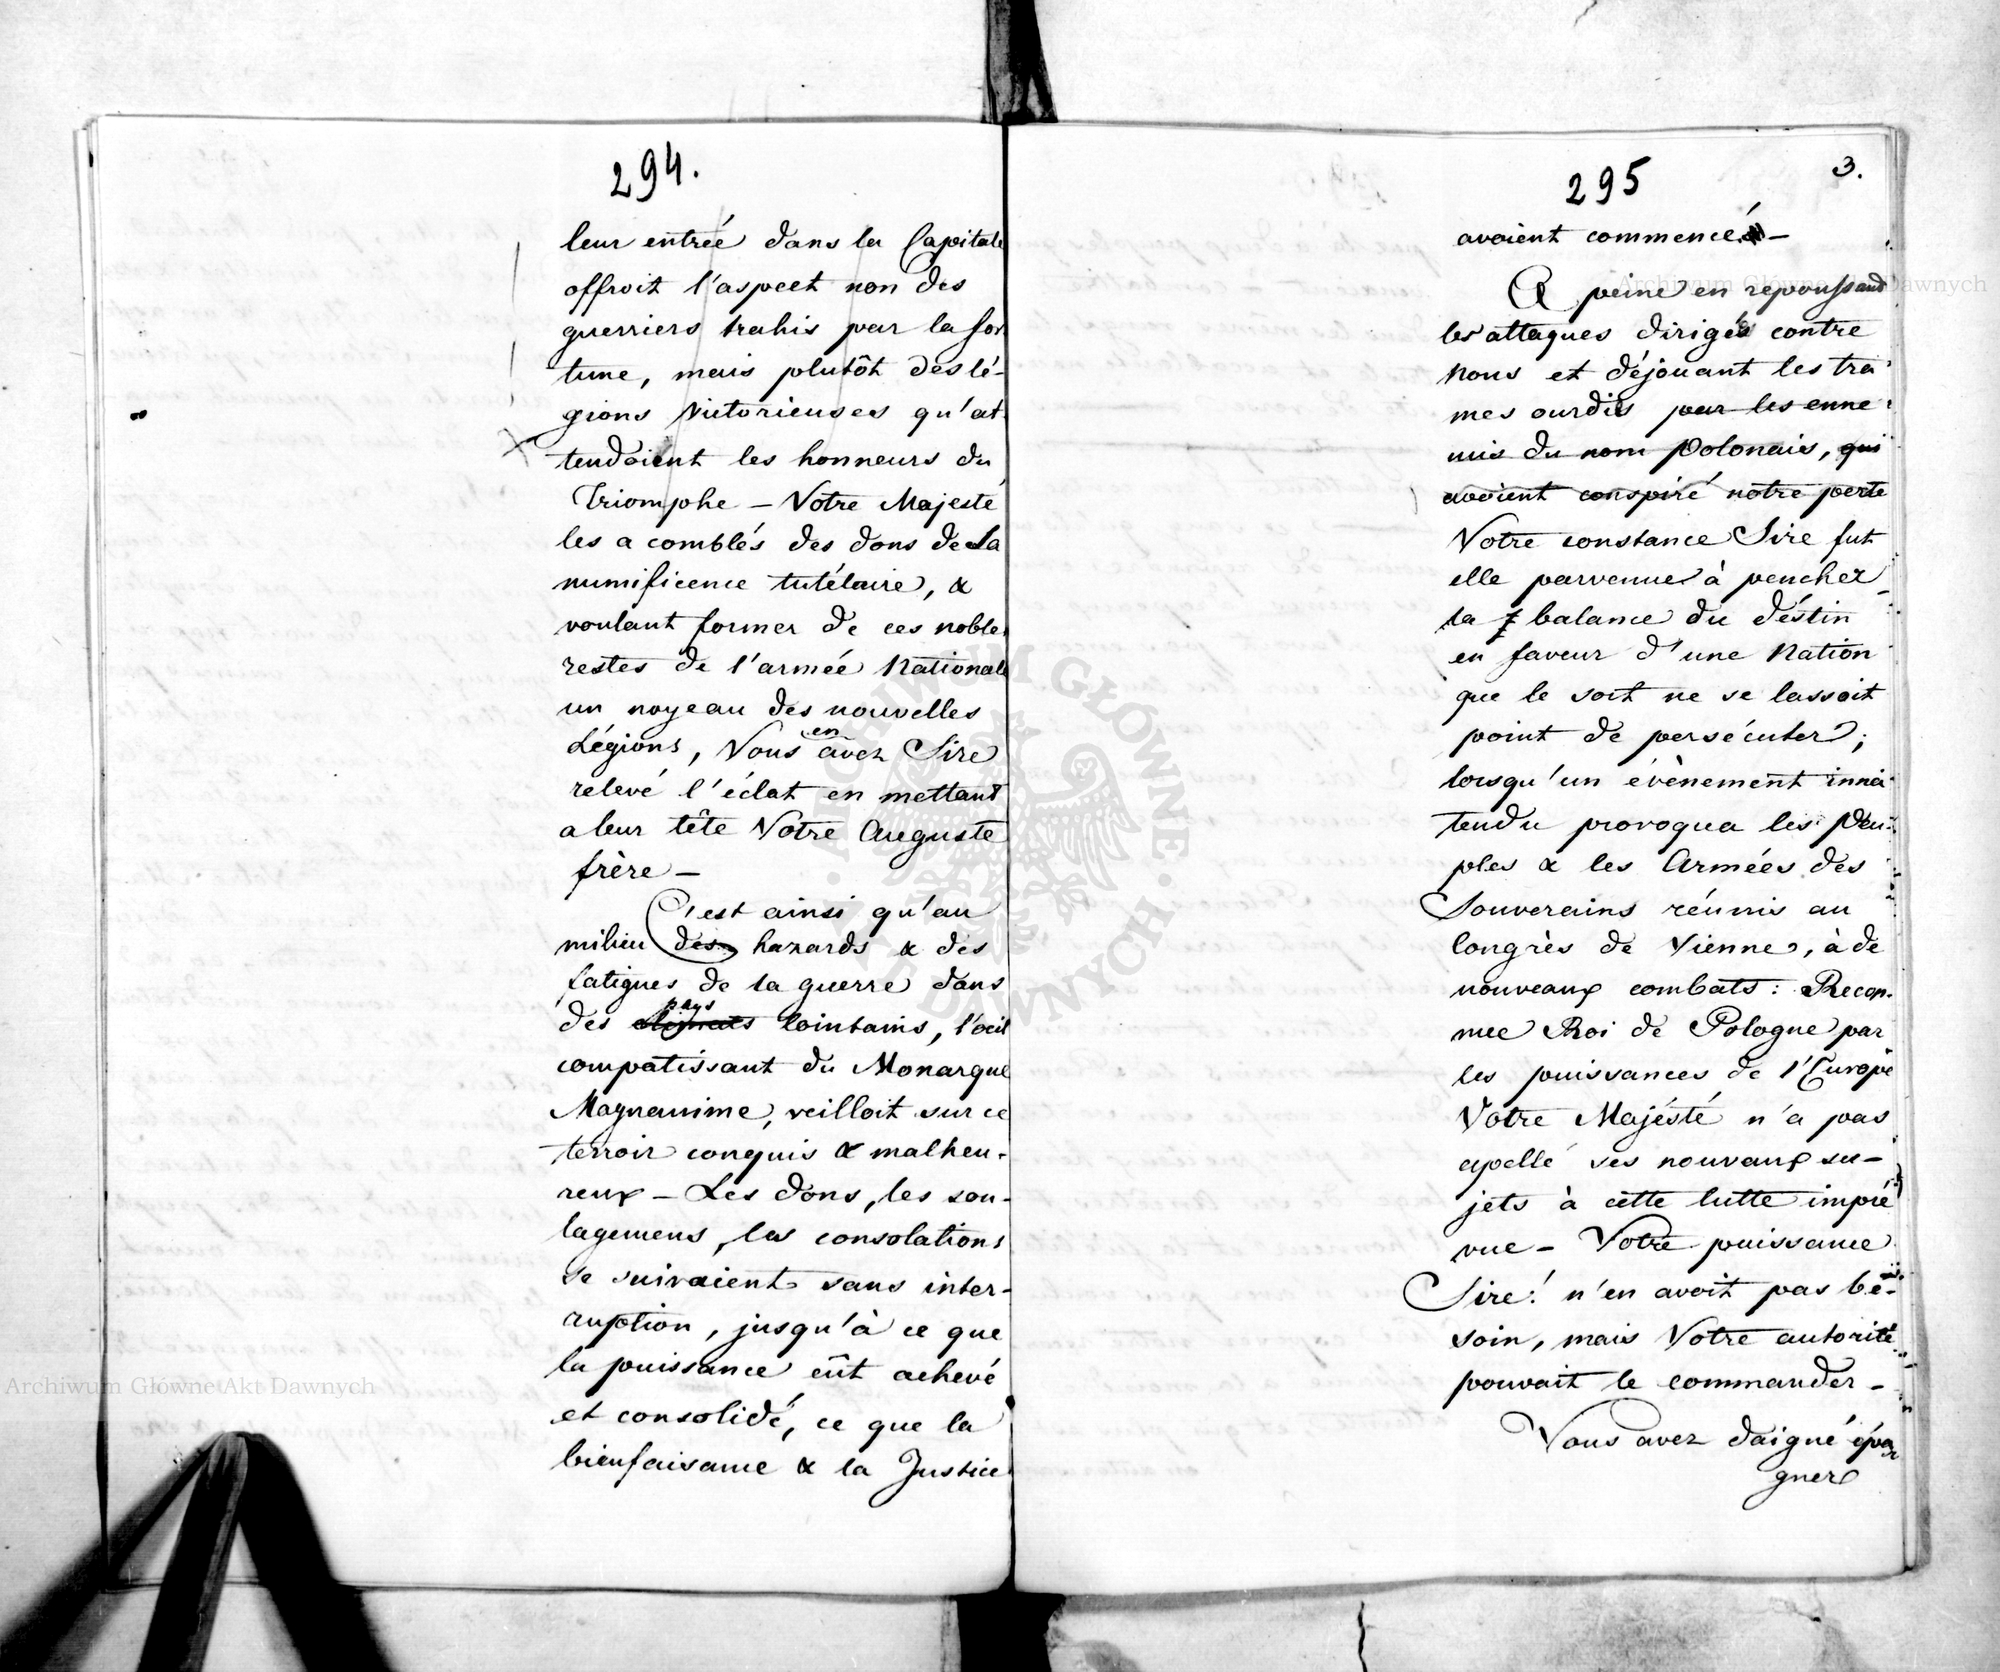 294.
leur entrée dans la Capitale
offroit l'aspect non des
guerriers trahis par la for
tune, mais plutôt des lé-
gions victorieuses qu'at
tendoient les honneurs du
Triomphe – Votre Majesté
les a comblés des dons de Sa
munificence tutélaire, &
voulant former de ces nobles
restes de l'armée Nationale
un noyeau des nouvelles
Légions, Vous en avez Sire
relevé l'éclat en mettant
a leur tête Votre Auguste
frère –
C'est ainsi qu'au
milieu des hazards & des
fatigues de la guerre dans
des climats pays lointains, l'oeil
compatissant du Monarque
Magnanime, veilloit sur ce
terroir conquis & malheu-
reux – Les dons, les sou-
lagemens, les consolations
se suivaient sans inter-
ruption, jusqu'à ce que
la puissance eût achevé
et consolidé, ce que la
bienfaisance & la Justice
295
3.
avoient commencé –
A peine en repoussant
les attaques dirigés contre
nous et déjouant les tra
mes ourdies par les enne
mis du nom Polonais, qui
avoient conspiré notre perte
Votre constance Sire fut
elle parvenue à pencher
la balance du déstin
en faveur d'une Nation
que le sort ne se lassoit
point de persécuter;
lorsqu'un évènement innat
tendu provoqua les Peu-
ples & les Armées des
Souverains réunis au
Congrès de Vienne, à de
nouveaux combats: Recon-
nue Roi de Pologne par
les puissances de l'Europe
Votre Majésté n'a pas
apellé ses nouveaux su-
jets à cette lutte impré
vue – Votre puissance
Sire! n'en avoit pas bé-
soin, mais Votre autorité
pouvait le commander –
Vous avez daigné épar
gner
Archiwum Główne Akt Dawnych
Archiwum Główne Akt Dawnych
ARCHIWUM GŁÓWNE AKT DAWNYCH